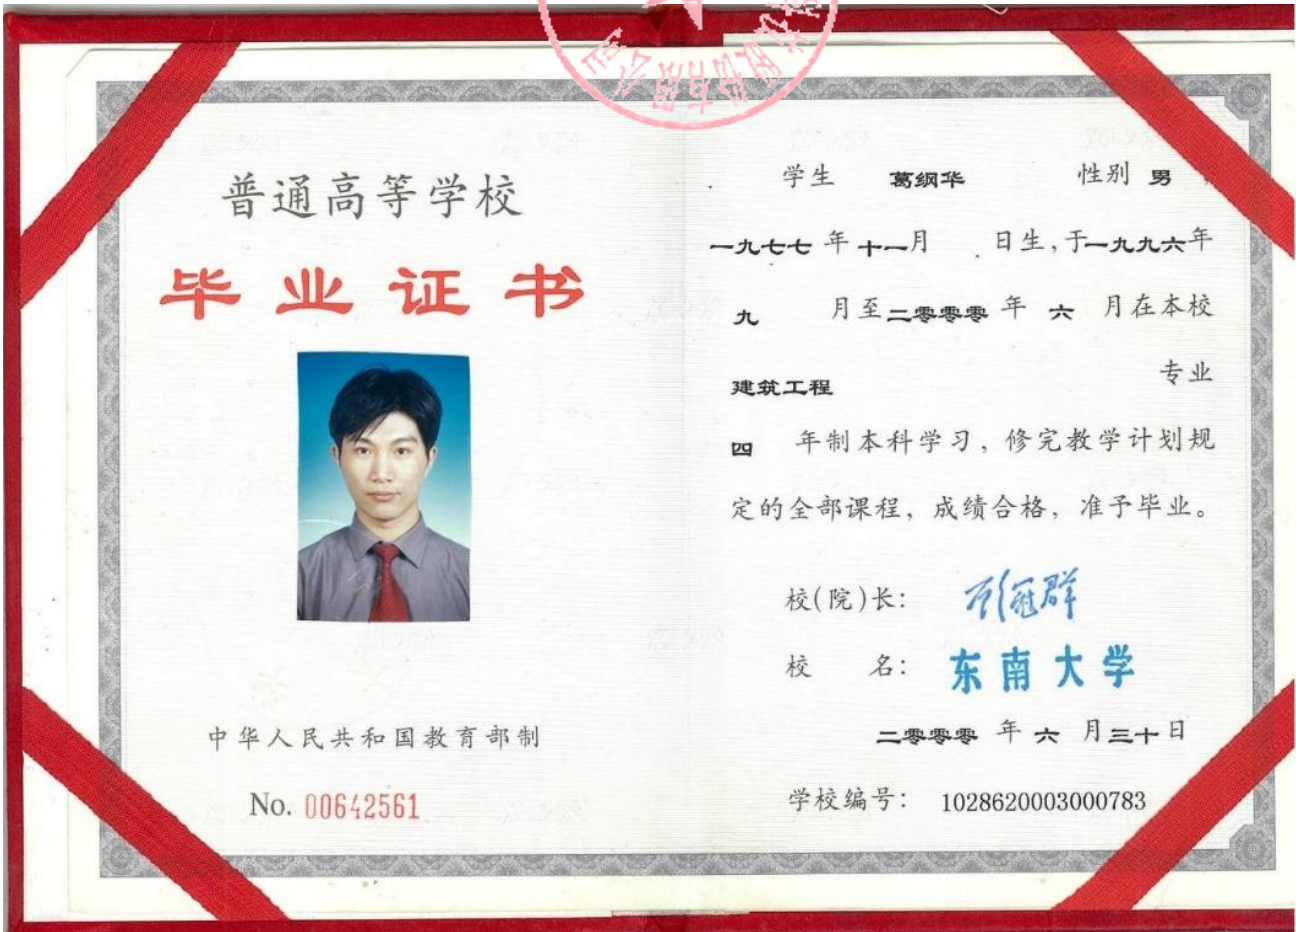 普通高等学校
毕业证书
中华人民共和国教育部制
No. 00642561
学生 葛纲华 性别 男,
一九七七 年 十一月 日生,于一九九六年
九 月至二零零零 年 六 月在本校
建筑工程 专业
四 年制本科学习,修完教学计划规
定的全部课程,成绩合格,准予毕业。
校(院)长:
校 名: 东南大学
二零零零 年 六 月三十日
学校编号: 1028620003000783